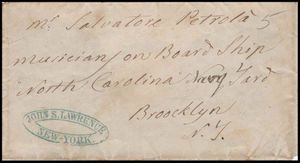 Mr. Salvatore Petrola 5
Musician on Board Ship
North Carolina Navy Yard
Broocklyn
N.Y.
JOHN S. LAWRENCE
NEW-YORK.